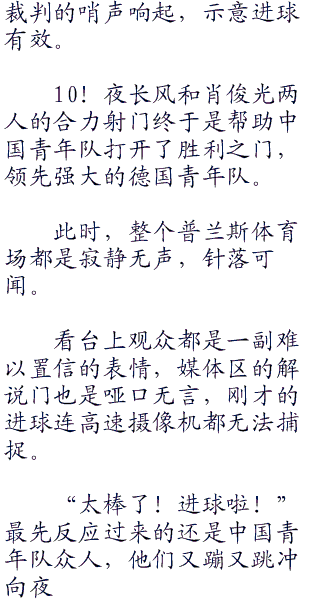 裁判的哨声响起，示意进球
有效。
10！夜长风和肖俊光两
人的合力射门终于是帮助中
国青年队打开了胜利之门，
领先强大的德国青年队。
此时，整个普兰斯体育
场都是寂静无声，针落可
闻。
看台上观众都是一副难
以置信的表情，媒体区的解
说门也是哑口无言，刚才的
进球连高速摄像机都无法捕
捉。
“太棒了！进球啦！”
最先反应过来的还是中国青
年队众人，他们又蹦又跳冲
向夜